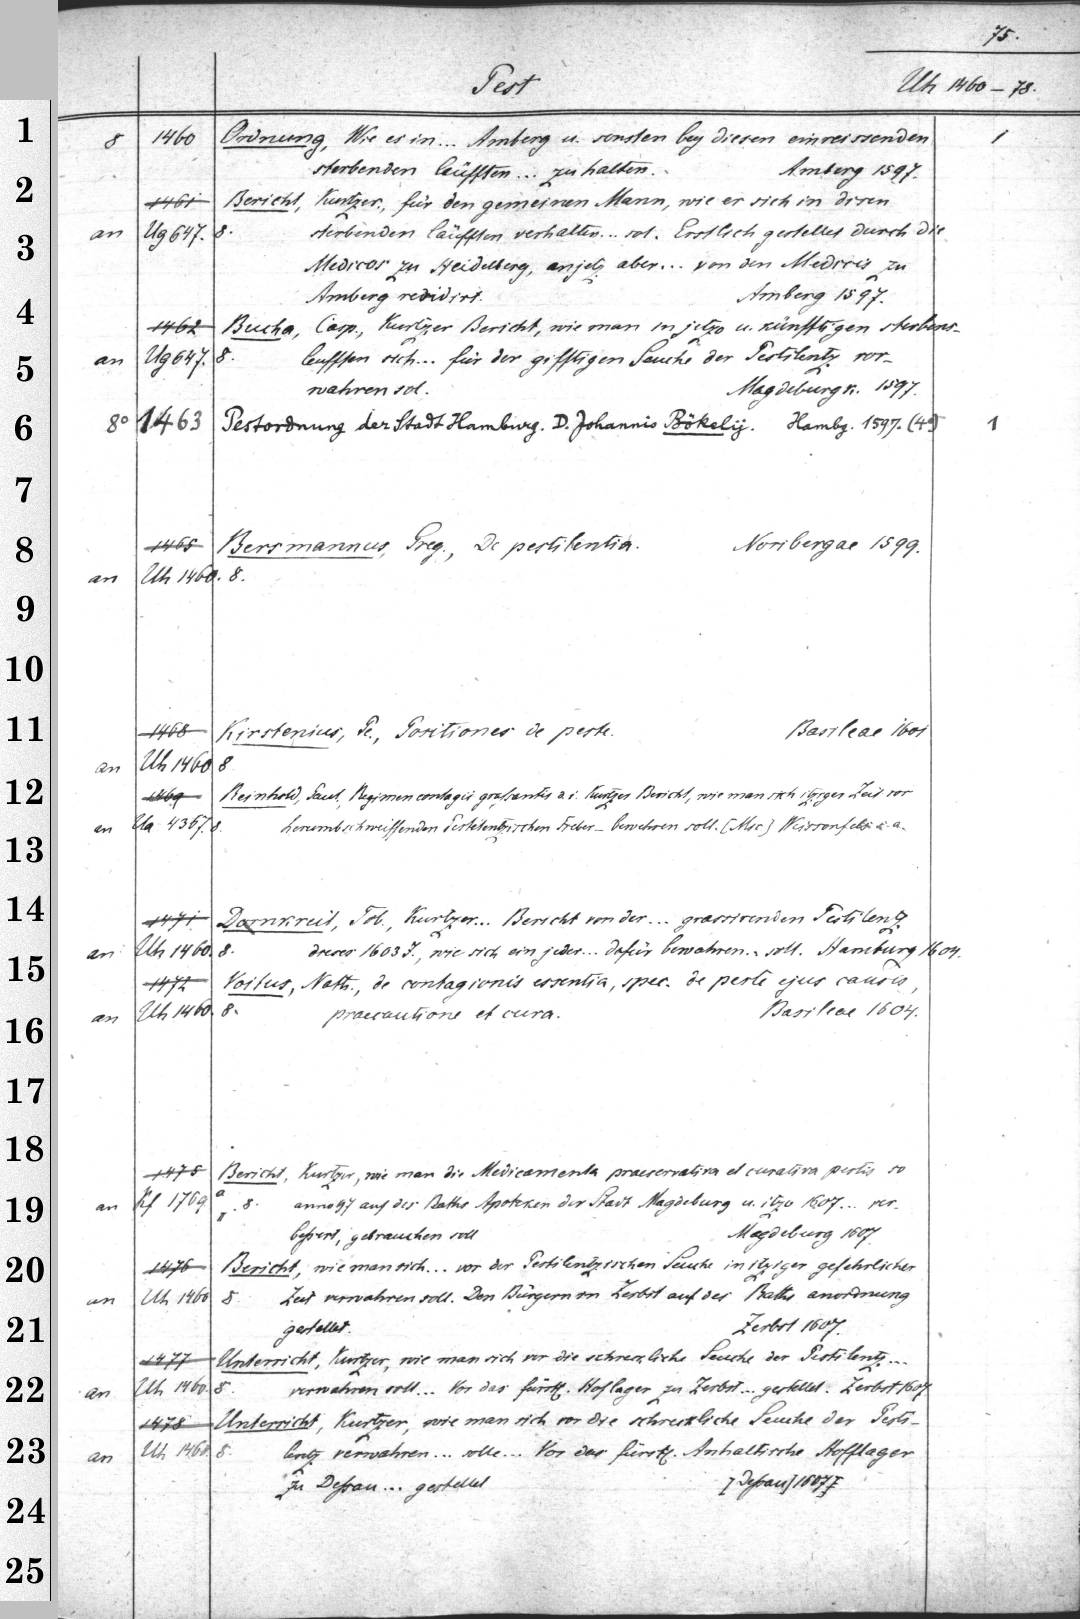 75.
Pest
Uh 1460 - 78.
8 1460 Ordnung, Wie es in... Amberg u. sonsten bey diesen einreissenden 1
sterbenden läufften... zu halten. Amberg 1597.
1461 Bericht, Kurtzer, für den gemeinen Mann, wie er sich in disen
an Ug 647. 8. sterbenden läufften verhalten... sol. Erstlich gestellet durch die
Medicos zu Heidelberg, anjetz aber... von den Medicis zu
Amberg redidirt. Amberg 1597.
1462 Bucha, Casp., Kurtzer Bericht, wie man in jetzo u. künfftigen sterbens-
an Ug 647. 8. leufften sich... für der gifftigen Seuche der Pestilentz vor-
wahren sol. Magdeburgk. 1597.
8° 1463 Pestordnung der Stadt Hamburg. D. Johannis Bökelij. Hambg. 1597. (4°) 1
1465 Bersmannus, Greg., De pestilentia. Noribergae 1599.
an Uh 1460. 8.
1468 Kirstenius, Pe., Positiones de peste. Basileae 1601
an Uh 1460 8
1469 Reinhold, Paul, Regimen contagii grassantis d. i. Kurtzer Bericht, wie man sich itziger Zeit vor
an Ua 4367. 8. herumbschweiffenden Pestelentzischen Fieber - bewahren soll. [Msc] Weissenfels
1471 Dornkreil, Tob., Kurtzer... Bericht von der... grassirenden Pestilentz
an Uh 1460. 8. dieses 1603 J., wie sich ein jeder... dafür bewahren... soll. Hamburg 1604.
1472 Voitus, Nath., de contagionis essentia, spec. de peste ejus causis,
an Uh 1460. 8. praecautione et cura. Basileae 1604.
1475 Bericht, Kurtzer, wie man die Medicamenta praeservativa et curativa pestis so
an Kf 1769 a 8. anno 97 auf des Raths Apoteken der Stadt Magdeburg u. itzo 1607... ver-
bessert, gebrauchen soll Magdeburg 1607
1476 Bericht, wie man sich... vor der Pestilentzischen Seuche in itziger gefehrlicher
an Uh 1460 8 Zeit verwahren soll. Den Bürgern in Zerbst auf des Raths anordnung
gestellet. Zerbst 1607.
1477 Unterricht, Kurtzer, wie man sich vor die schreckliche Seuche der Pestilentz...
an Uh 1460. 8. verwahren soll... Vor das fürstl. Hoflager zu Zerbst... gestellet. Zerbst 1607
1478 Unterricht, Kurtzer, wie man sich vor die schreckliche Seuche der Pesti-
an Uh 1460. 8. lentz verwahren... solle... Vor das fürstl. Anhaltische Hofflager
zu Dessau... gestellet [Dessau] 1607
1
2
3
4
5
6
7
8
9
10
11
12
13
14
15
16
17
18
19
20
21
22
23
24
25